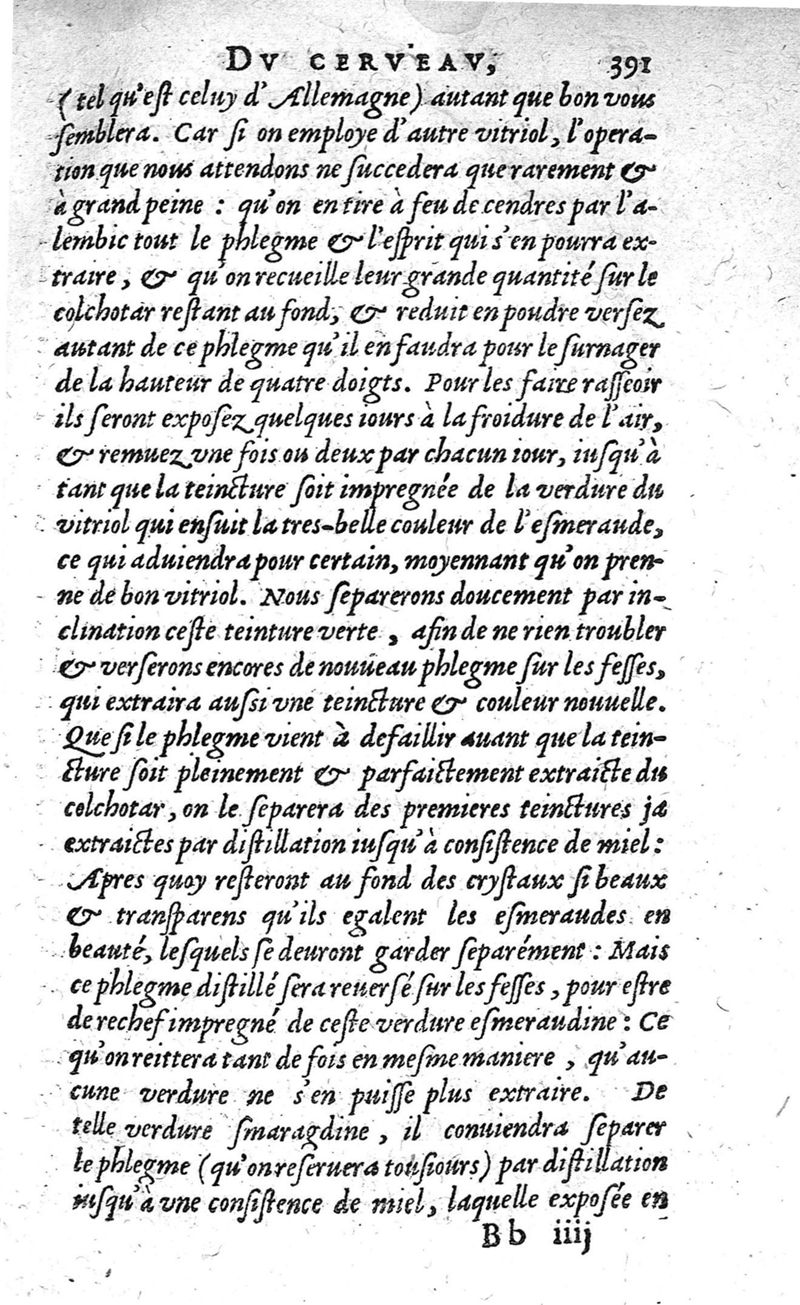 DV CERVEAV, 391
(tel qu'eſt celuy d'Allemagne) autant que bon vous
ſemblera. Car ſi on employe d'autre vitriol, l'opera-
tion que nous attendons ne ſuccedera que rarement &
à grand peine : qu'on en tire à feu de cendres par l'a-
lembic tout le phlegme & l'eſprit qui s'en pourra ex-
traire, & qu'on recueille leur grande quantité ſur le
colchotar reſtant au fond, & reduit en poudre verſez
autant de ce phlegme qu'il en faudra pour le ſurnager
de la hauteur de quatre doigts. Pour les faire raſſeoir
ils ſeront expoſez quelques iours à la froidure de l'air,
& remuez vne fois ou deux par chacun iour, iuſqu'à
tant que la teincture ſoit impregnée de la verdure du
vitriol qui enſuit la tres-belle couleur de l'eſmeraude,
ce qui aduiendra pour certain, moyennant qu'on pren-
ne de bon vitriol. Nous ſeparerons doucement par in-
clination ceſte teinture verte , afin de ne rien troubler
& verſerons encores de nouueau phlegme ſur les feſſes,
qui extraira auſsi vne teincture & couleur nouuelle.
Que ſi le phlegme vient à defaillir auant que la tein-
cture ſoit pleinement & parfaictement extraicte du
colchotar, on le ſeparera des premieres teinctures ja
extraictes par diſtillation iuſqu'à conſiſtence de miel :
Apres quoy reſteront au fond des cryſtaux ſi beaux
& tranſparens qu'ils egalent les eſmeraudes en
beauté, leſquels ſe deuront garder ſeparément : Mais
ce phlegme diſtillé ſera reuerſé ſur les feſſes, pour eſtre
de rechef impregné de ceſte verdure eſmeraudine : Ce
qu'on reittera tant de fois en meſme maniere , qu'au-
cune verdure ne s'en puiſſe plus extraire. De
telle verdure ſmaragdine, il conuiendra ſeparer
le phlegme (qu'on reſeruera touſiours) par diſtillation
iuſqu'à vne conſiſtence de miel, laquelle expoſée en
Bb iiij